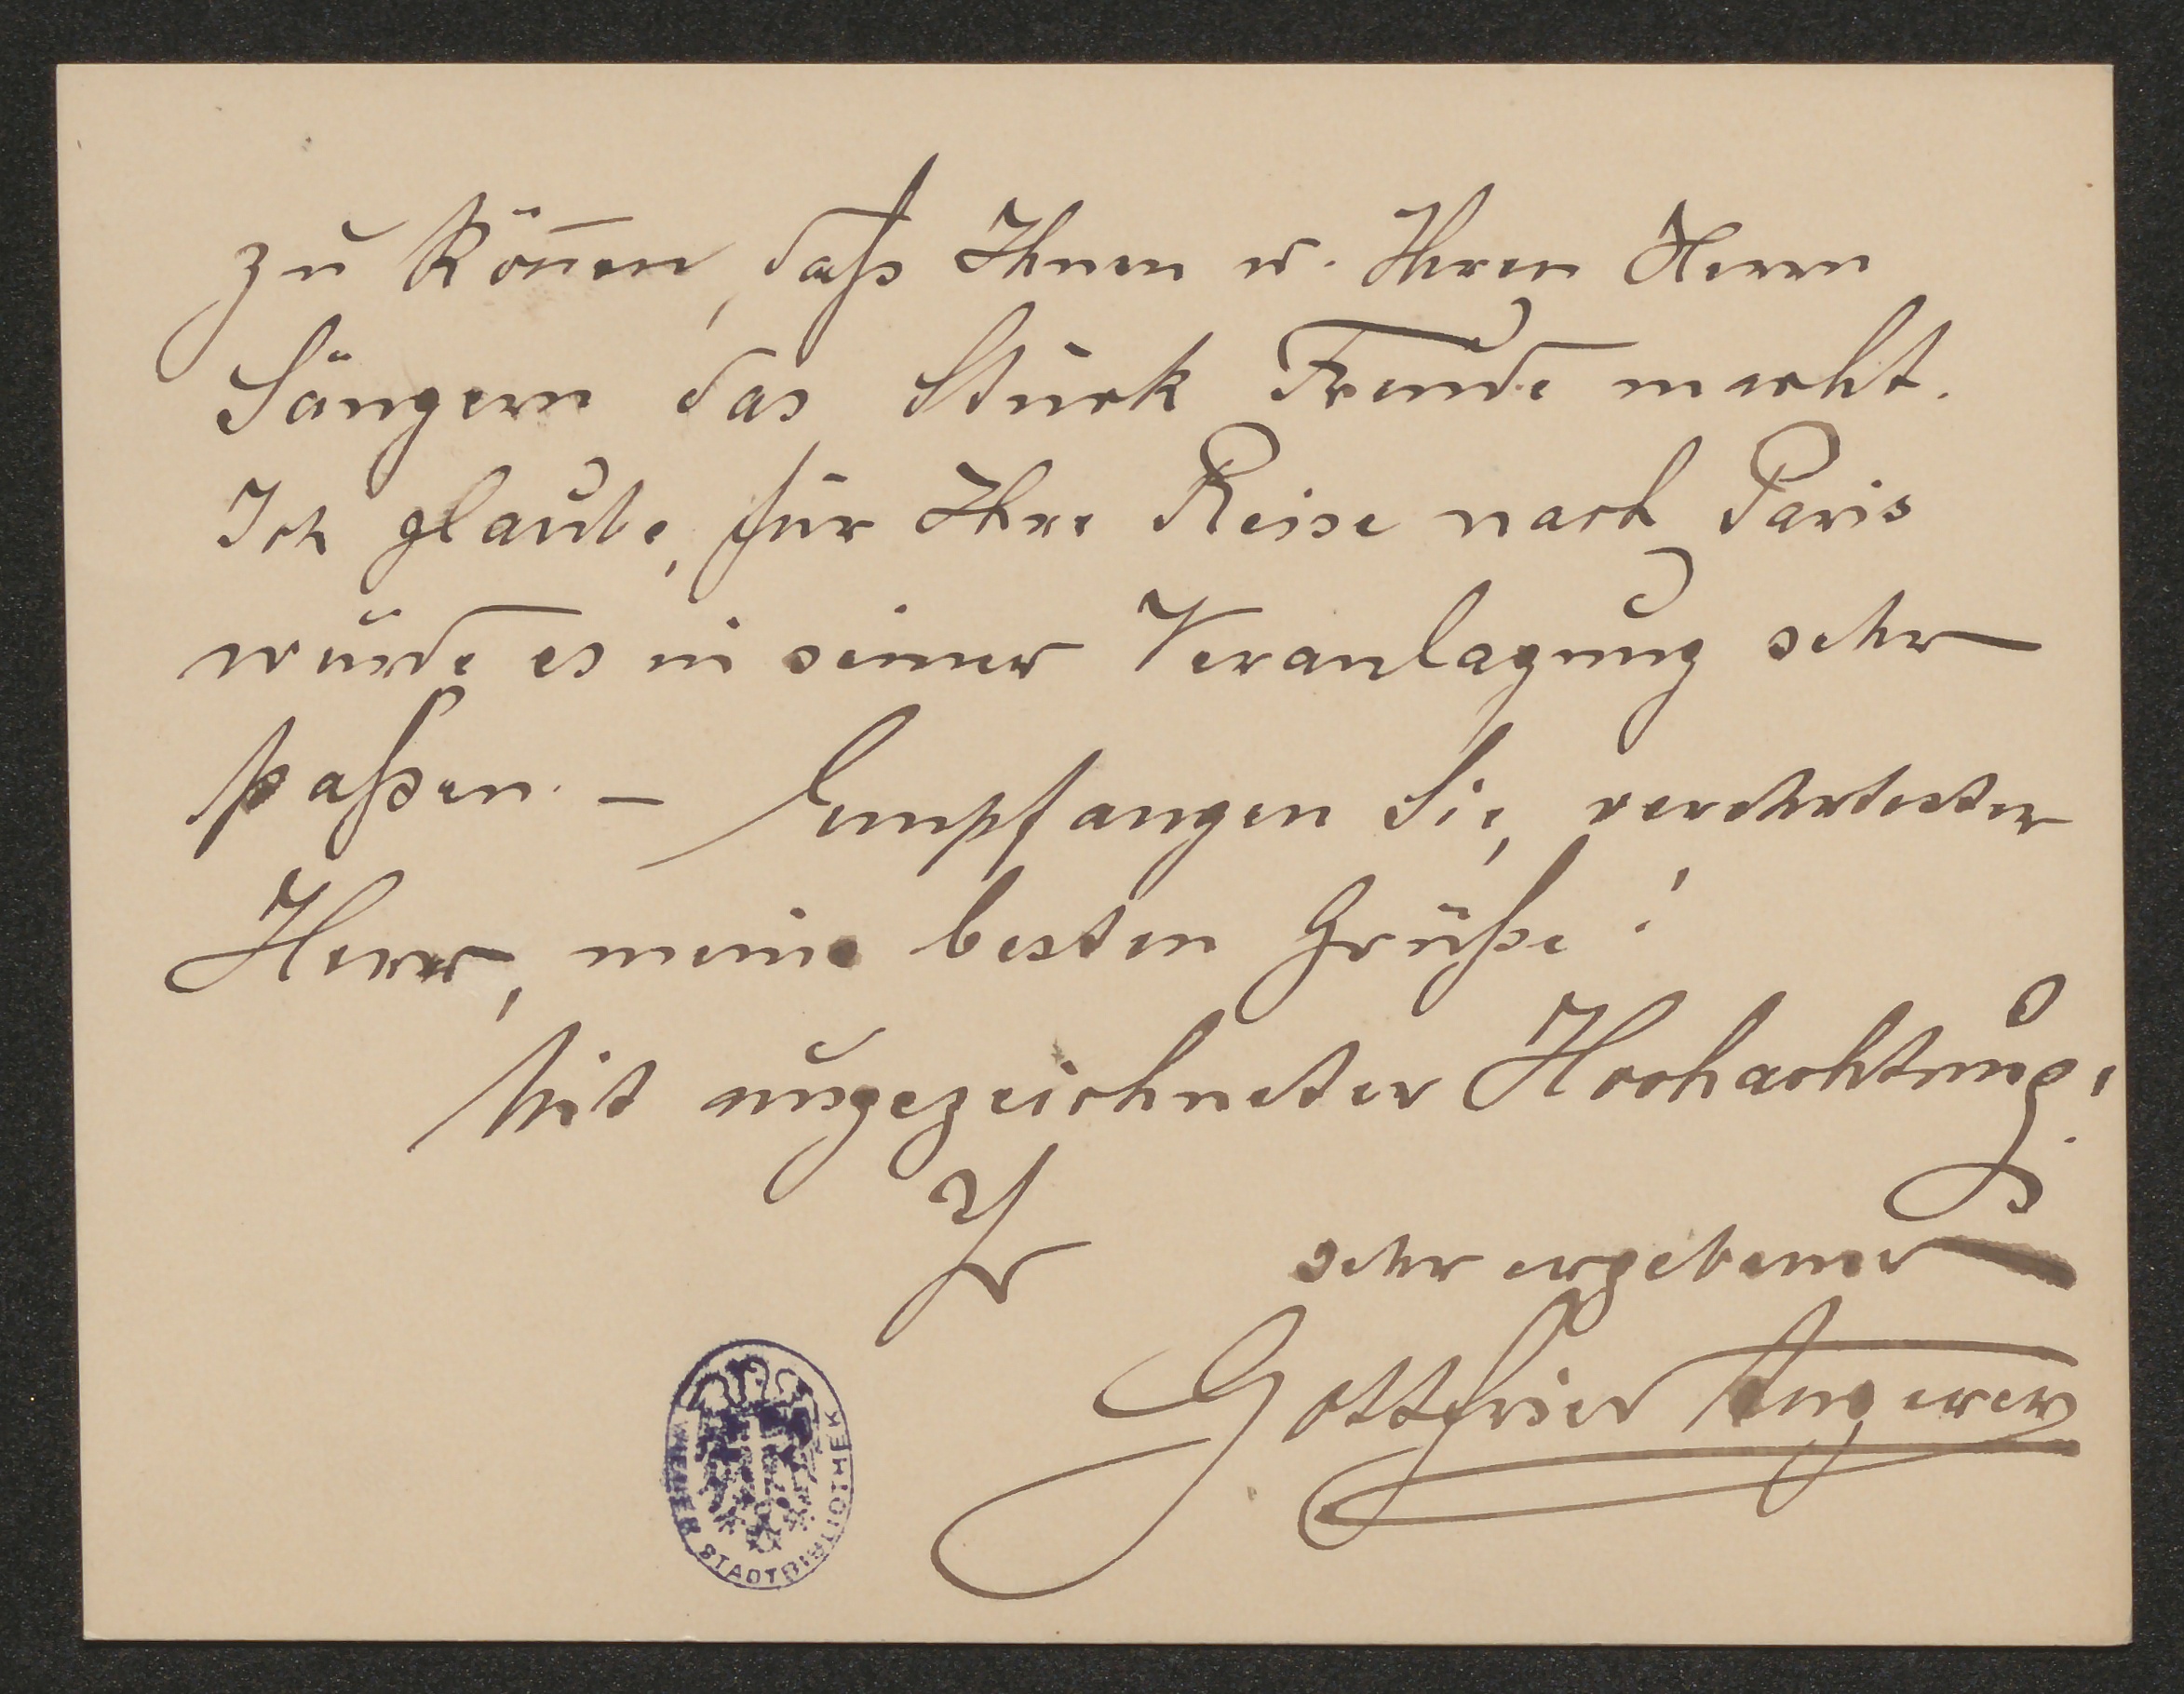 zu kön̄en, daß Ihnen u. Ihren Herrn
Sängern das Stück Freude macht.
Ich glaube, für Ihre Reise nach Paris
würde es in seiner Veranlagung sehr
paßen. – Empfangen Sie, verehrtester
Herr, meine besten Grüße!
Mit ausgezeichneter Hochachtung!
Ihr sehr ergebener
Gottfried Angerer
WIENER STADTBIBLIOTHEK